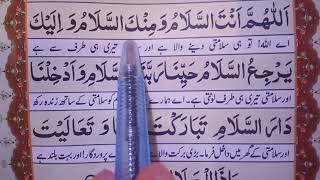 اَللّٰهُمَّ اَنْتَ السَّلَامُ وَمِنْكَ السَّلَامُ وَاِلَيْكَ
اے اللہ! تو ہی سلامتی دینے والا ہے اور تیری ہی طرف سے ہے
يَرْجِعُ السَّلَامُ حَيِّنَا رَبَّنَا بِالسَّلَامِ وَاَدْخِلْنَا
اور سلامتی تیری ہی طرف لوٹتی ہے۔ اے ہمارے سلامتی کے ساتھ زندہ رکھ
دَارَ السَّلَامِ تَبَارَكْتَ وَتَعَالَيْتَ
اور سلامتی کے گھر میں داخل فرما۔ بڑی برکت والا پروردگار! اور بہت بلند ہے